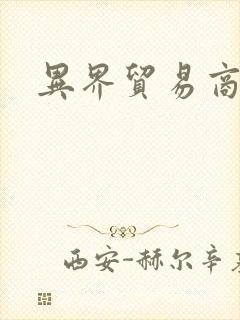 異界貿易商
西安-赫尔辛